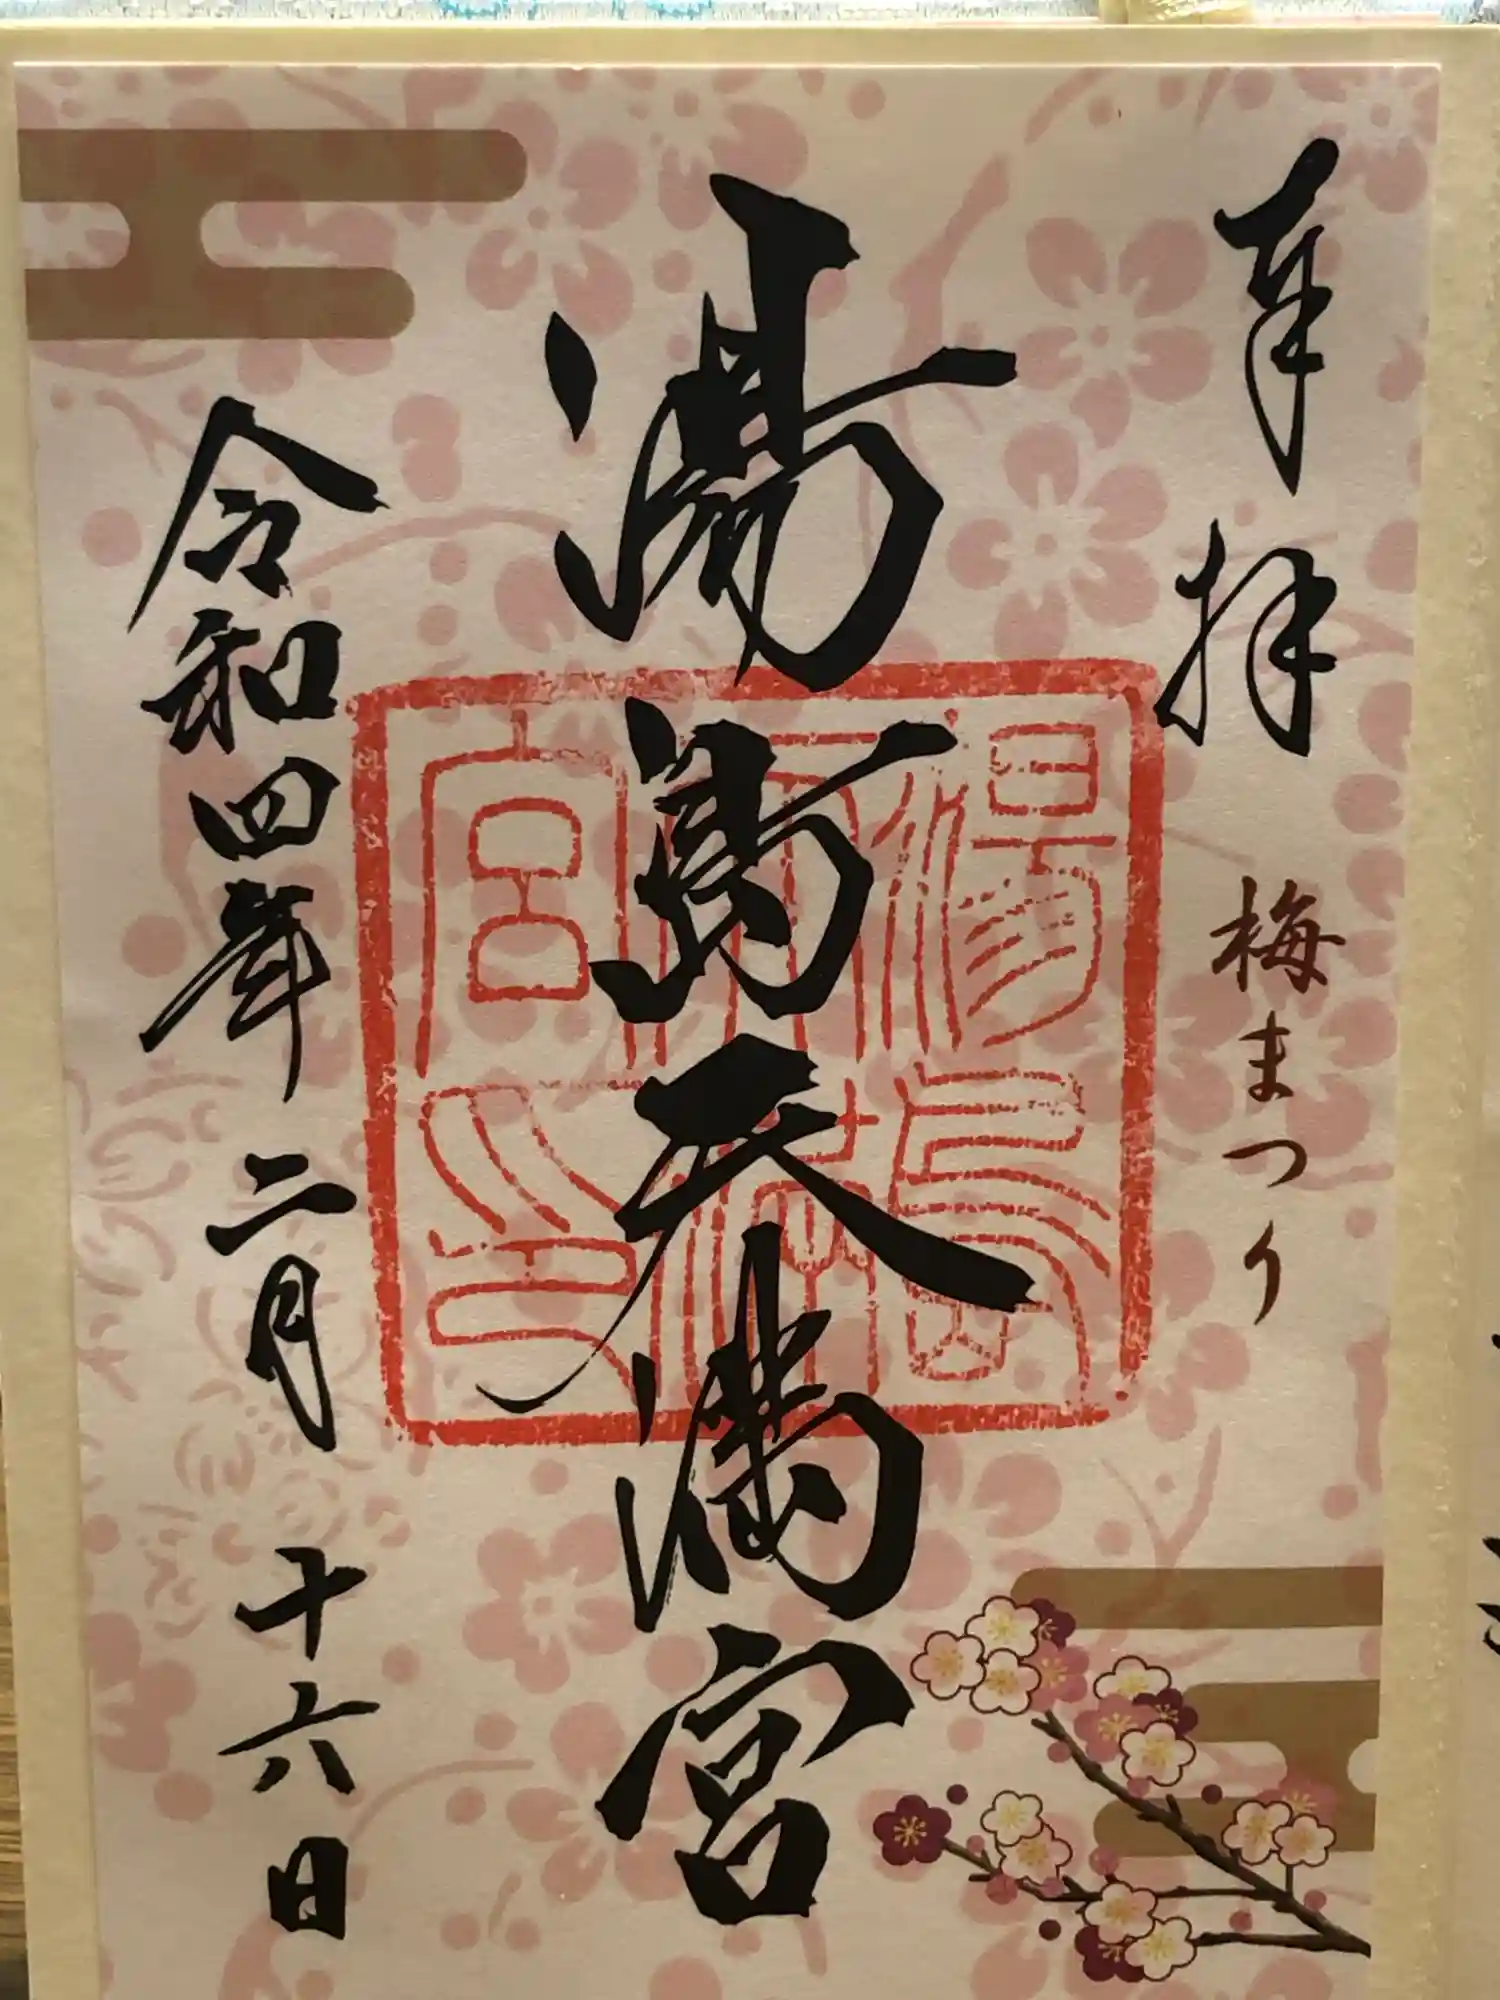 奉拝 梅まつり
湯島天満宮
令和四年二月十六日